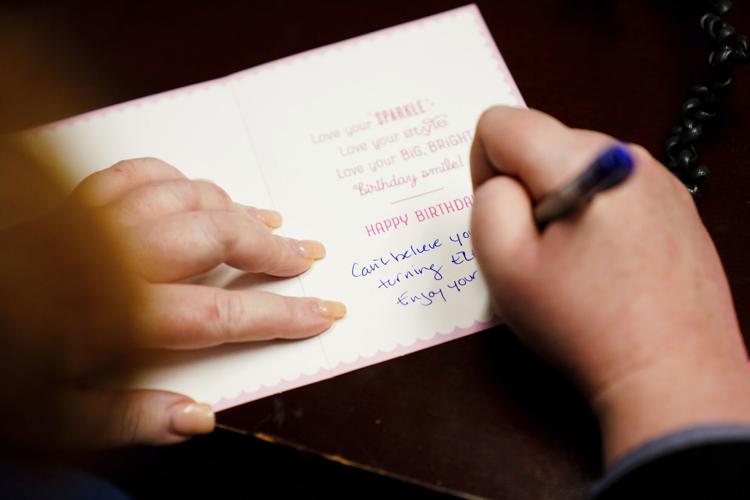 Love your "SPARKLE"
Love your style
Love your BIG, BRIGHT
birthday smile!
HAPPY BIRTHDA
Can't believe yo
turning
Enjoy your